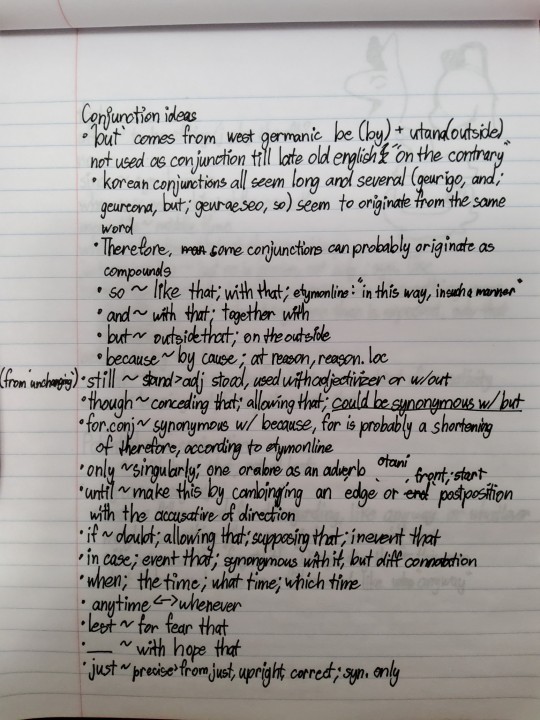 Conjunction ideas
• 'but' comes from west germanic be (by) + utana(outside)
not used as conjunction till late old english & "on the contrary"
• korean conjunctions all seem long and several (geurigo, and;
geureona, but; geuraeseo, so) seem to originate from the same
word
• Therefore, some conjunctions can probably originate as
compounds
• so ~ like that; with that; etymonline: "in this way, in such a manner"
• and ~ with that; together with
• but ~ outside that; on the outside
• because ~ by cause; at reason, reason.loc
(from unchanging) • still ~ stand>adj stood, used with adjectivizer or w/out
• though ~ conceding that; allowing that; could be synonymous w/ but
• for.conj ~ synonymous w/ because, for is probably a shortening
of therefore, according to etymonline
• only ~ singularly; one or as an adverb otani
front, start
• until ~ make this by combinging an edge or end postposition
with the accusative of direction
• if ~ doubt; allowing that; supposing that; in event that
• in case; event that; synonymous with if, but diff connotation
• when; the time; what time; which time
• anytime <-> whenever
• lest ~ for fear that
• ___ ~ with hope that
• just ~ precise> from just, upright, correct; syn. only